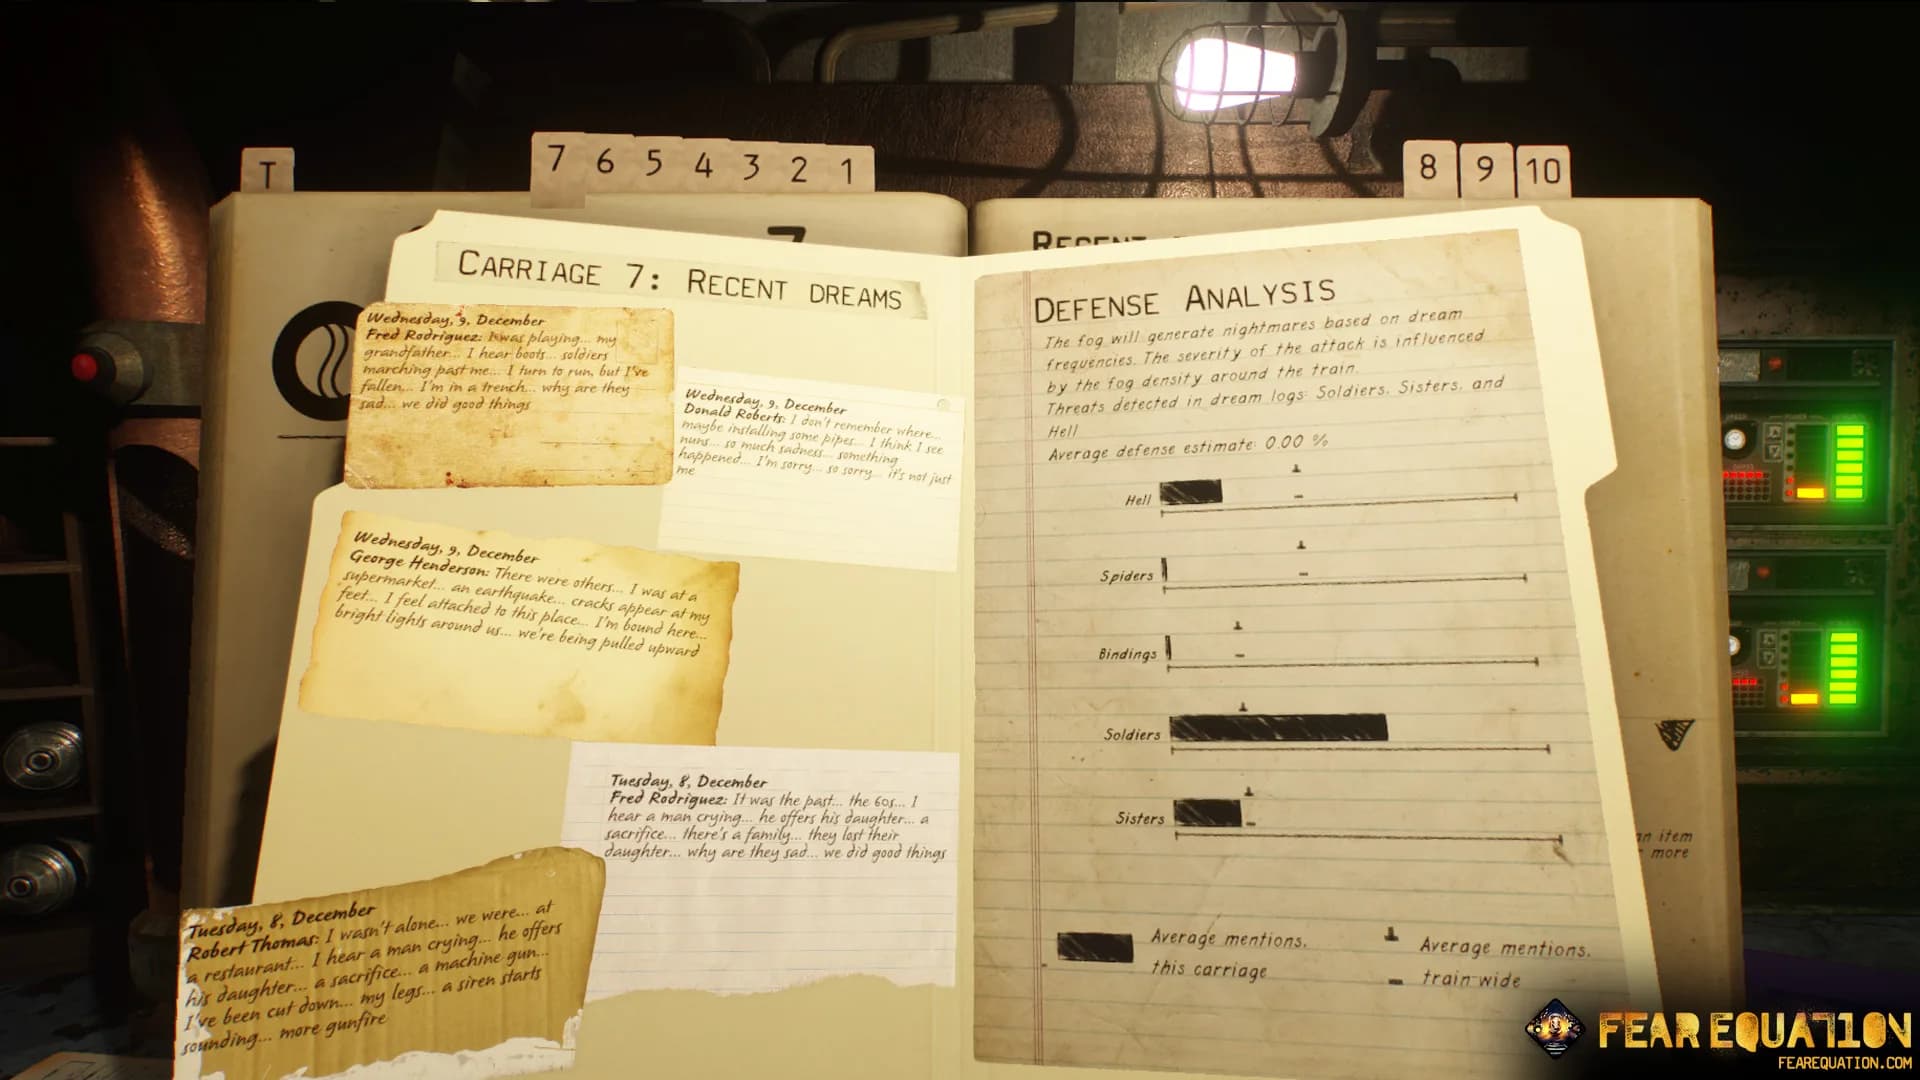 T
7 6 5 4 3 2 1
8 9 10
7
CARRIAGE 7: RECENT DREAMS
Wednesday, 9, December
Fred Rodriguez: I was playing... my
grandfather... I hear boots... soldiers
marching past me... I turn to run, but I've
fallen... I'm in a trench... why are they
sad... we did good things
Wednesday, 9, December
Donald Roberts: I don't remember where...
maybe installing some pipes... I think I see
nuns... so much sadness... something
happened... I'm sorry... so sorry... it's not just
me
Wednesday, 9, December
George Henderson: There were others... I was at a
supermarket... an earthquake... cracks appear at my
feet... I feel attached to this place... I'm bound here...
bright lights around us... we're being pulled upward
Tuesday, 8, December
Fred Rodriguez: It was the past... the 60s... I
hear a man crying... he offers his daughter... a
sacrifice... there's a family... they lost their
daughter... why are they sad... we did good things
Tuesday, 8, December
Robert Thomas: I wasn't alone... we were... at
a restaurant... I hear a man crying... he offers
his daughter... a sacrifice... a machine gun...
I've been cut down... my legs... a siren starts
sounding... more gunfire
RECENT
DEFENSE ANALYSIS
The fog will generate nightmares based on dream
frequencies. The severity of the attack is influenced
by the fog density around the train.
Threats detected in dream logs: Soldiers, Sisters, and
Hell
Average defense estimate: 0.00 %
Hell
Spiders
Bindings
Soldiers
Sisters
Average mentions,
this carriage
Average mentions,
train-wide
an item
more
FEAR EQUATION
FEAREQUATION.COM